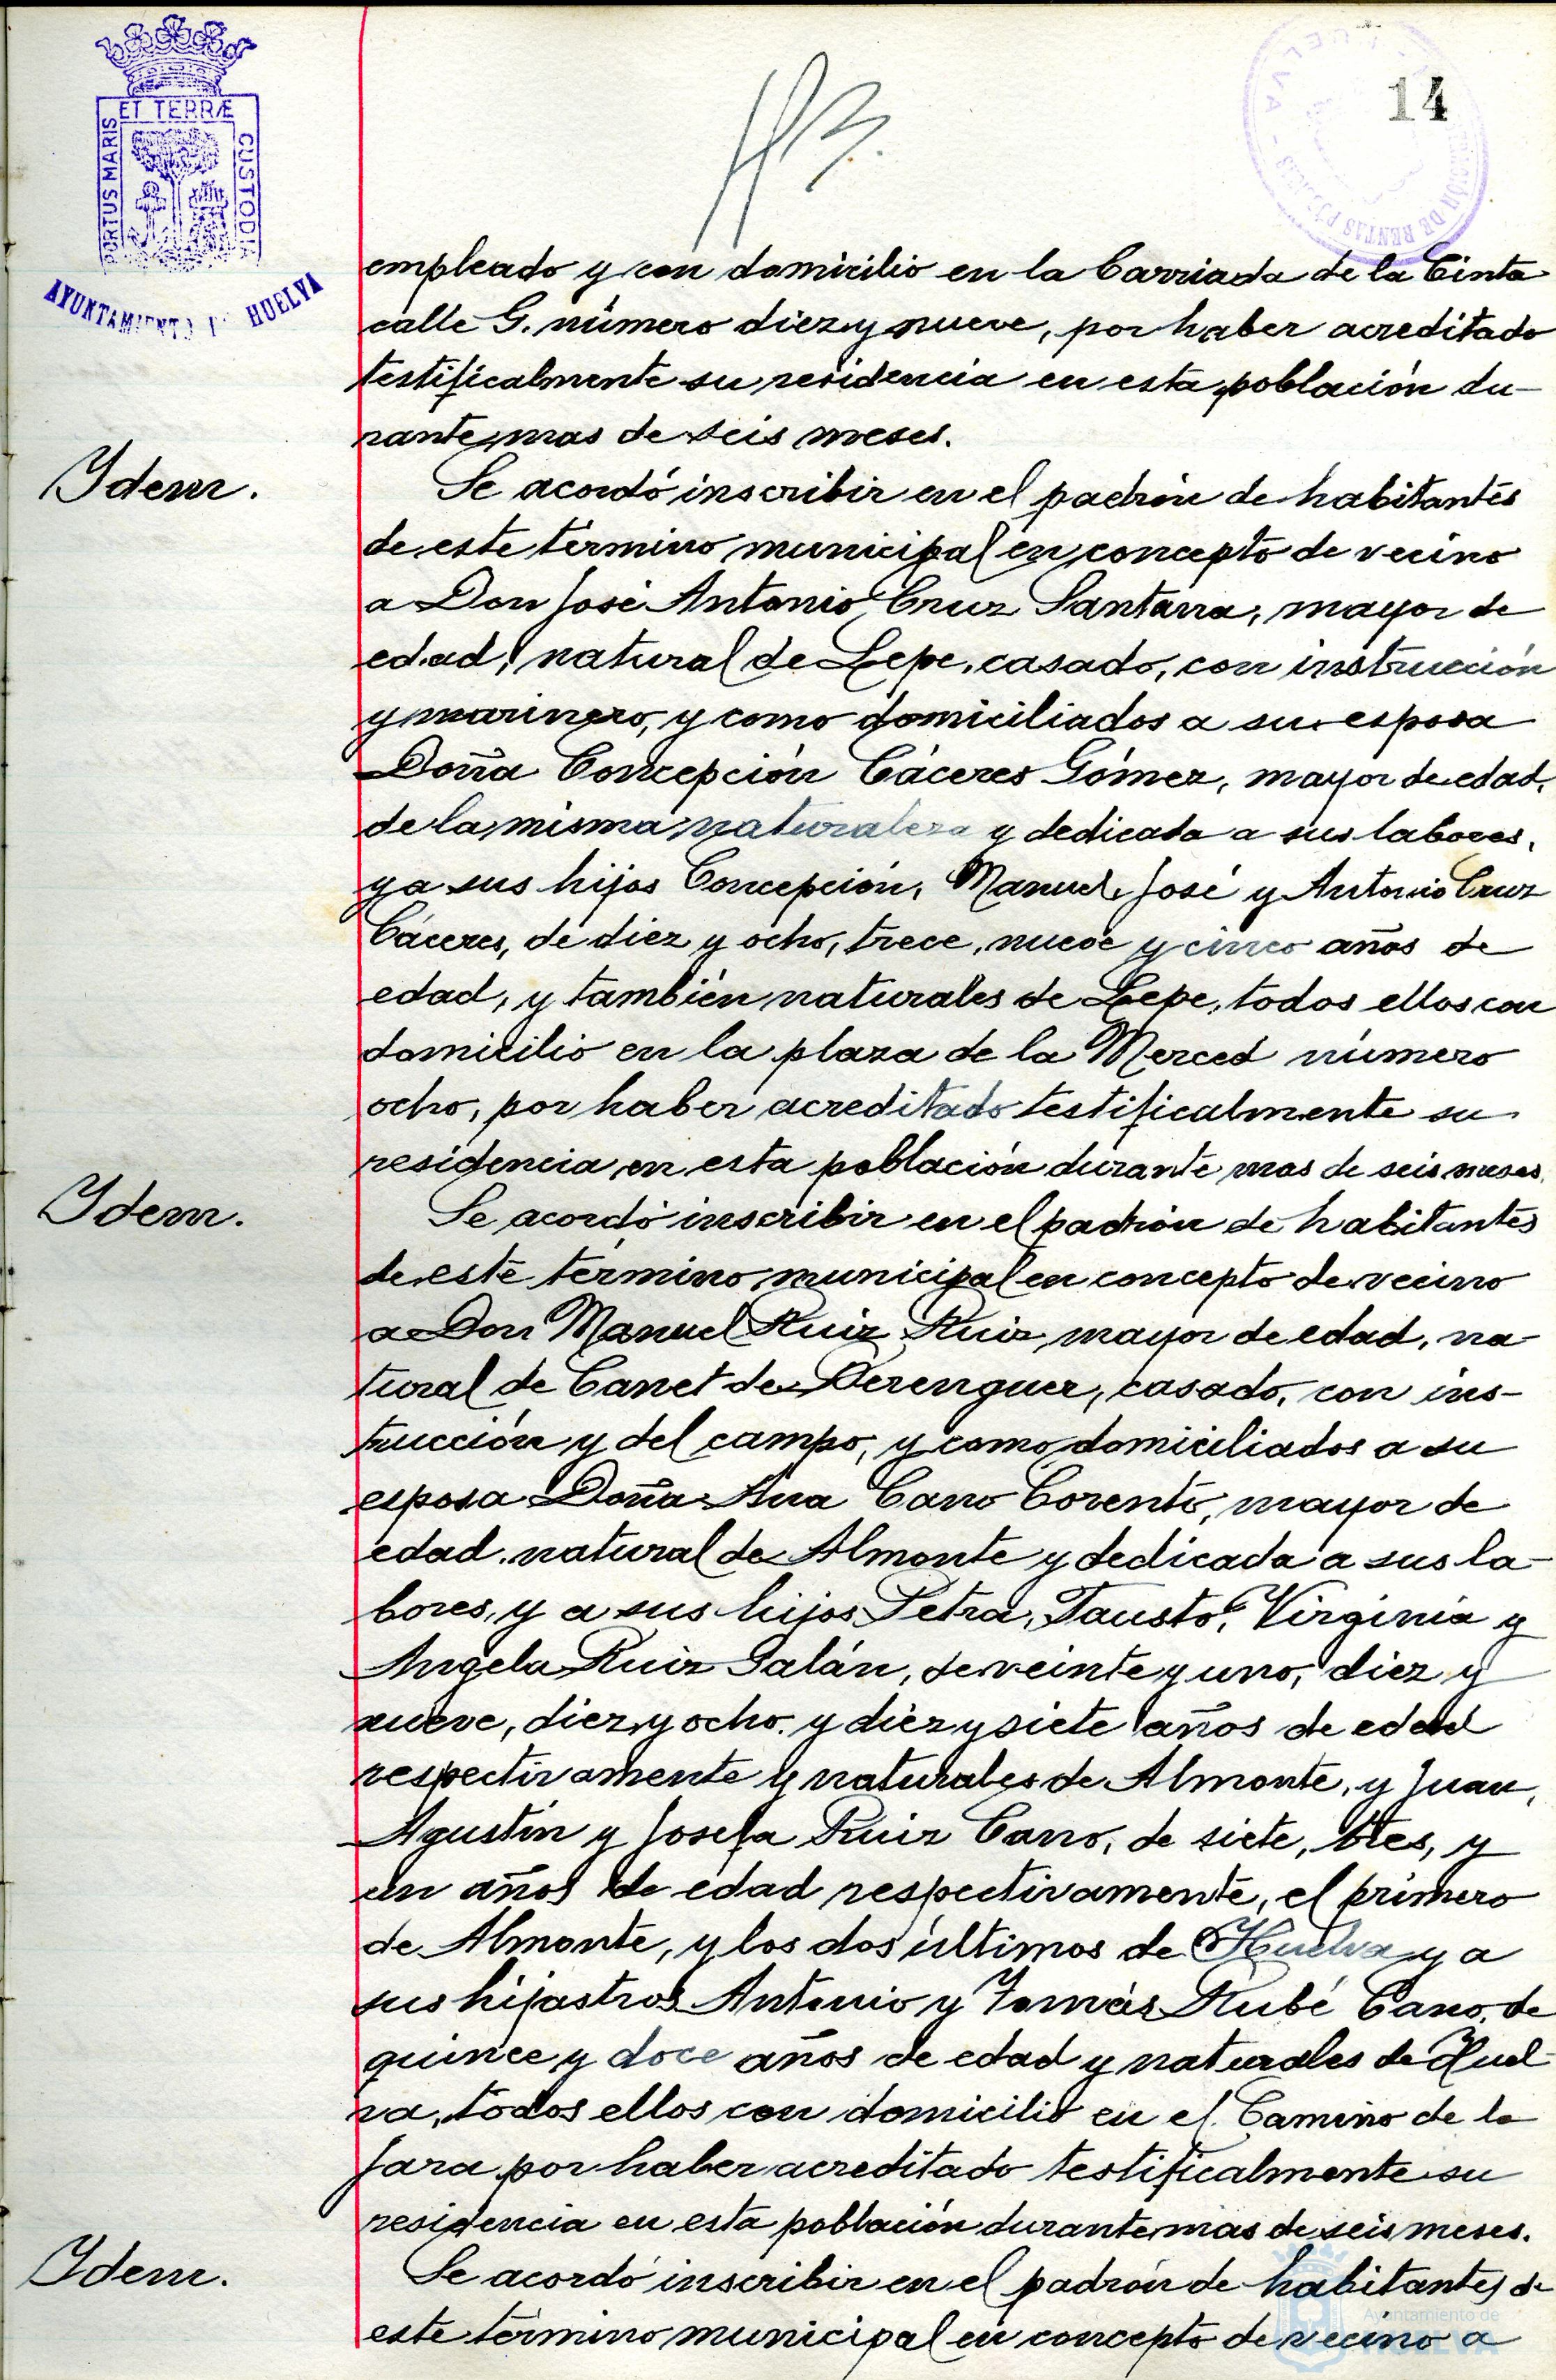 ET TERRÆ
PORTUS MARIS
CUSTODIA
AYUNTAMIENTO HUELVA
14
empleado y con domicilio en la barriada de la Cinta
calle G. número diez y nueve, por haber acreditado
testificalmente su residencia en esta población du-
rante mas de seis meses.
Ydem.
Se acordó inscribir en el padrón de habitantes
de este término municipal en concepto de vecino
a Don José Antonio Cruz Santana, mayor de
edad, natural de Lepe, casado, con instrucción
y marinero, y como domiciliados a su esposa
Doña Concepción Cáceres Gómez, mayor de edad,
de la misma naturaleza y dedicada a sus labores,
y a sus hijos Concepción, Manuel, José y Antonio Cruz
Cáceres, de diez y ocho, trece, nueve y cinco años de
edad, y también naturales de Lepe, todos ellos con
domicilio en la plaza de la Merced número
ocho, por haber acreditado testificalmente su
residencia en esta población durante mas de seis meses.
Ydem.
Se acordó inscribir en el padrón de habitantes
de este término municipal en concepto de vecino
a Don Manuel Ruiz Ruiz mayor de edad, na-
tural de Canet de Berenguer, casado, con ins-
trucción y del campo, y como domiciliados a su
esposa Doña Ana Cano Corento, mayor de
edad, natural de Almonte y dedicada a sus la-
bores, y a sus hijos Petra, Fausto, Virginia y
Angela Ruiz Galán, de veinte y uno, diez y
nueve, diez y ocho y diez y siete años de edad
respectivamente y naturales de Almonte, y Juan,
Agustín y Josefa Ruiz Cano, de siete, tres, y
un años de edad respectivamente, el primero
de Almonte, y los dos últimos de Huelva y a
sus hijastros Antonio y Tomás Rubé Cano, de
quince y doce años de edad y naturales de Huel-
va, todos ellos con domicilio en el Camino de la
Jara por haber acreditado testificalmente su
residencia en esta población durante mas de seis meses.
Ydem.
Se acordó inscribir en el padrón de habitantes de
este término municipal en concepto de vecino a
Ayuntamiento de
HUELVA